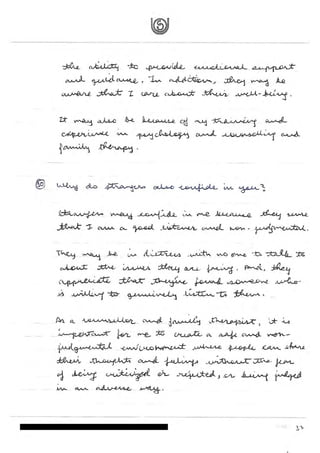 the ability to provide emotional support
and guidance. In addition, they may be
aware that I care about their well-being.
It may also be because of my training and
experience in psychology and counselling and
family therapy.
Why do strangers also confide in you?
Strangers may confide in me because they sense
that I am a good listener and non-judgmental.
They may be in distress with no one to talk to
about the issues they are facing. And, they
appreciate that they've found someone who
is willing to genuinely listen to them.
As a counsellor and family therapist, it is
important for me to create a safe and non-
judgmental environment where people can share
their thoughts and feelings without the fear
of being criticized or rejected, or being judged
in an adverse way.